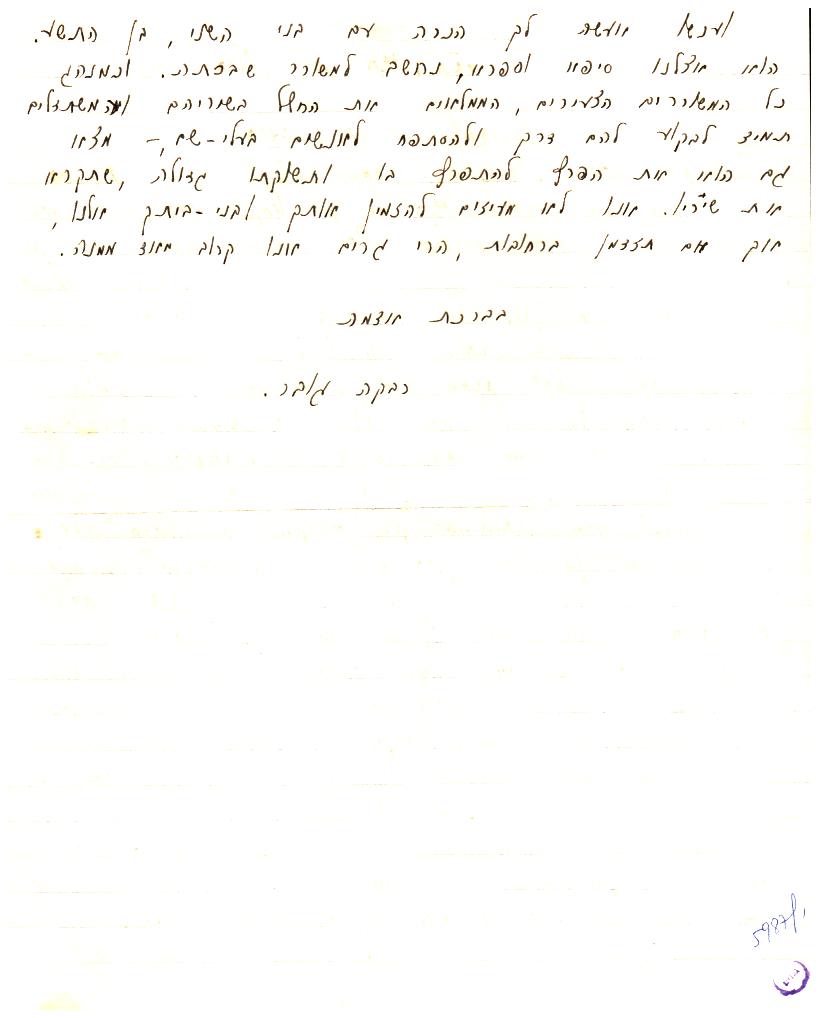 ועכשו אעשה לך הכרה עם בני השני, בן התשע.
הוא אצלנו סיפא וספרא, נחשב למשורר שבכתה. וכמנהג
כל המשוררים הצעירים, הממלאים את החלל בשיריהם והמשתדלים
תמיד לבקוע להם דרך ולהסתפח לאנשים בעלי-שם, – מצא
גם הוא את הפרץ להתפרץ בו ותשוקתו גדולה, שתקרא
את שיריו. אנו לא מעיזים להזמין אותך ובני-ביתך אלנו,
אך אם תזדמן ברחובות, הרי גרים אנו קרוב מאוד ממנה.
בברכת אומה
רבקה גובר.
5987/1